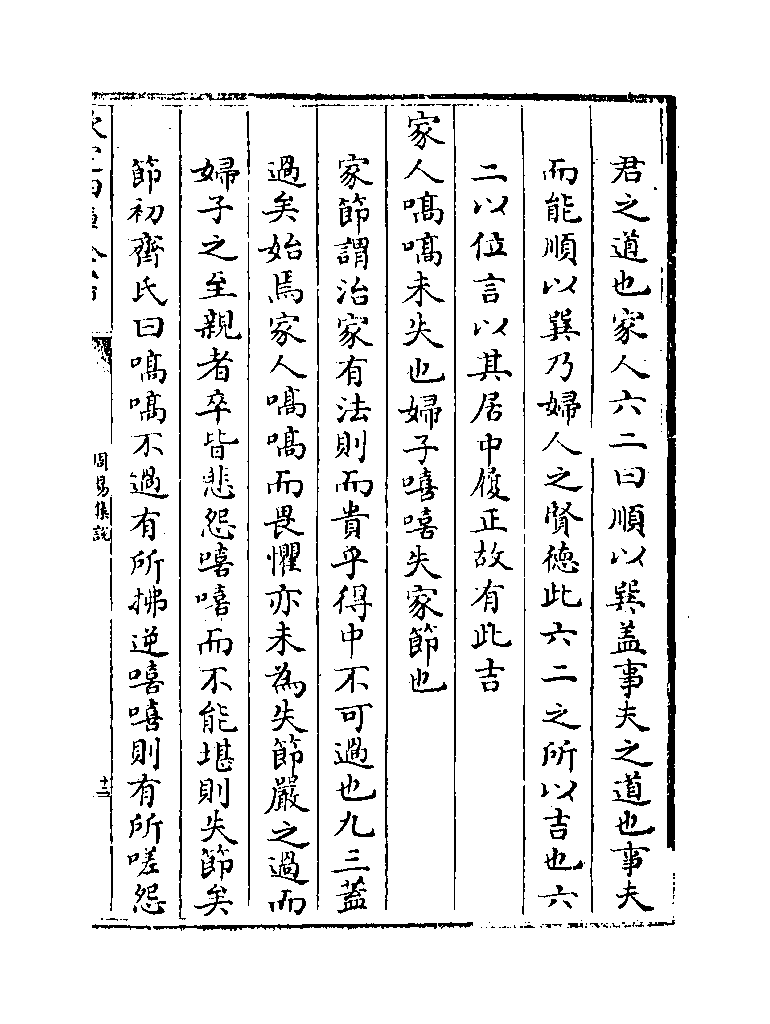 君之道也家人六二曰順以巽盖事夫之道也事夫
而能順以巽乃婦人之賢德此六二之所以吉也六
二以位言以其居中履正故有此吉
家人嗃嗃未失也婦子嘻嘻失家節也
家節謂治家有法則而貴乎得中不可過也九三蓋
過矣始焉家人嗃嗃而畏懼亦未為失節嚴之過而
婦子之至親者卒皆悲怨嘻嘻而不能堪則失節矣
節初齊氏曰嗃嗃不過有所拂逆嘻嘻則有所嗟怨
周易集說
十三